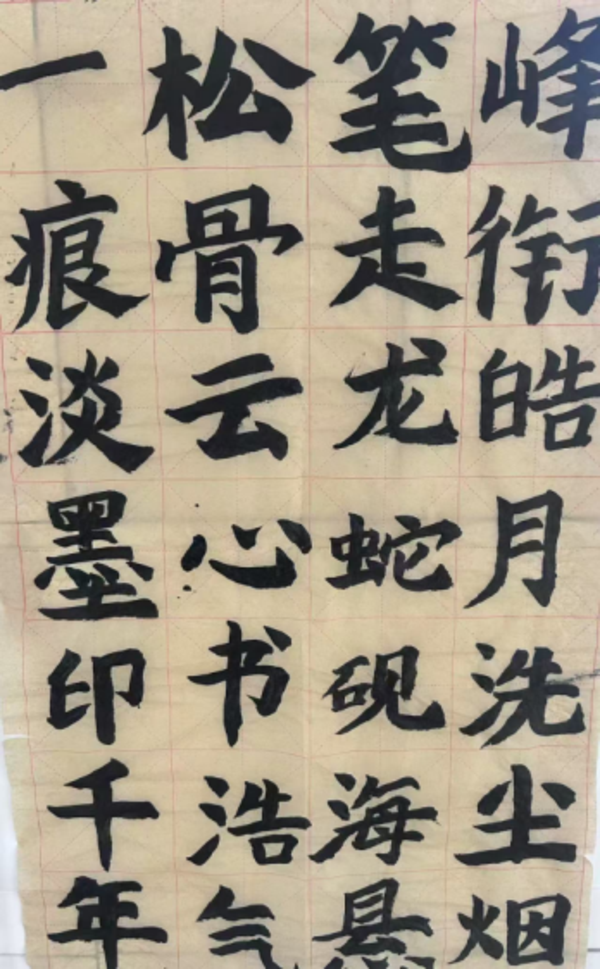 峰衔皓月洗尘烟
笔走龙蛇砚海悬
松骨云心书浩气
一痕淡墨印千年